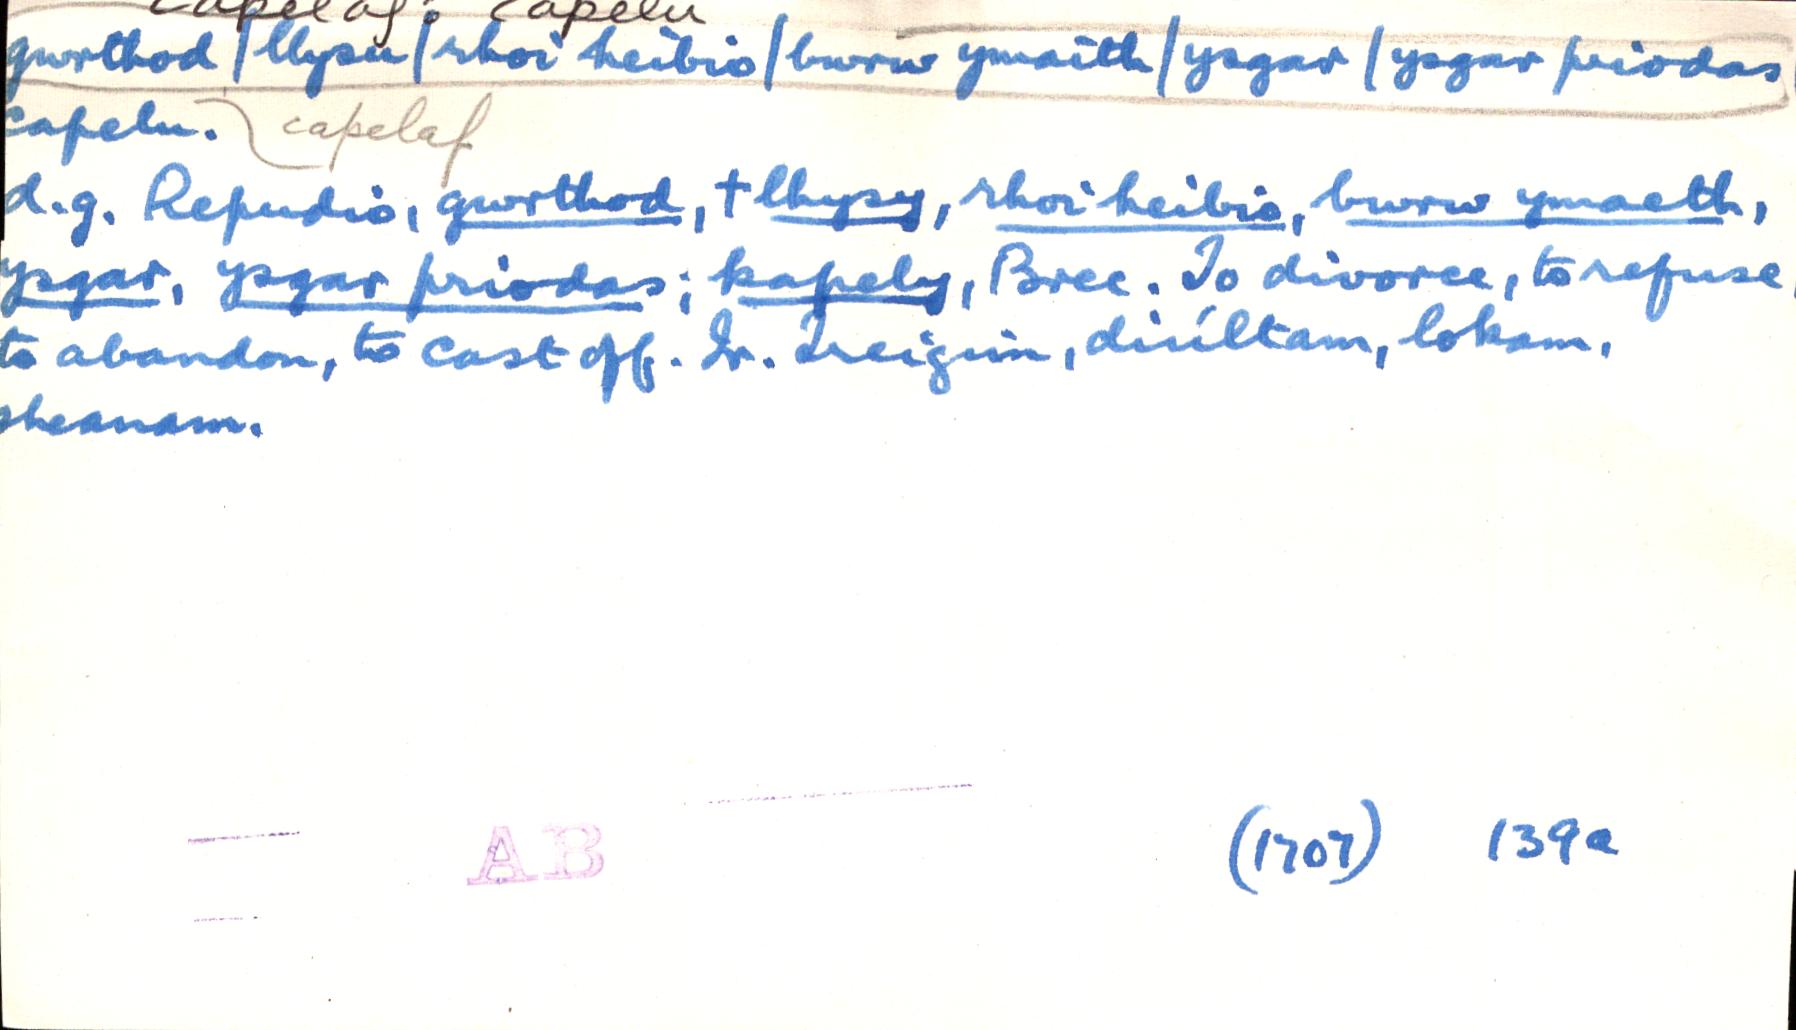 capelaf: capelu
gwrthod / llysu / rhoi heibio / bwrw ymaith / ysgar / ysgar priodas
capelu. capelaf
d.g. Repudio, gwrthod, † lhysy, rhoi heibio, bwrw ymaeth,
ysgar, ysgar priodas; kapely, Brec. To divorce, to refuse,
to abandon, to cast off. Ir. Treigim, diúltam, lokam,
sheanam.
AB (1707) 139a